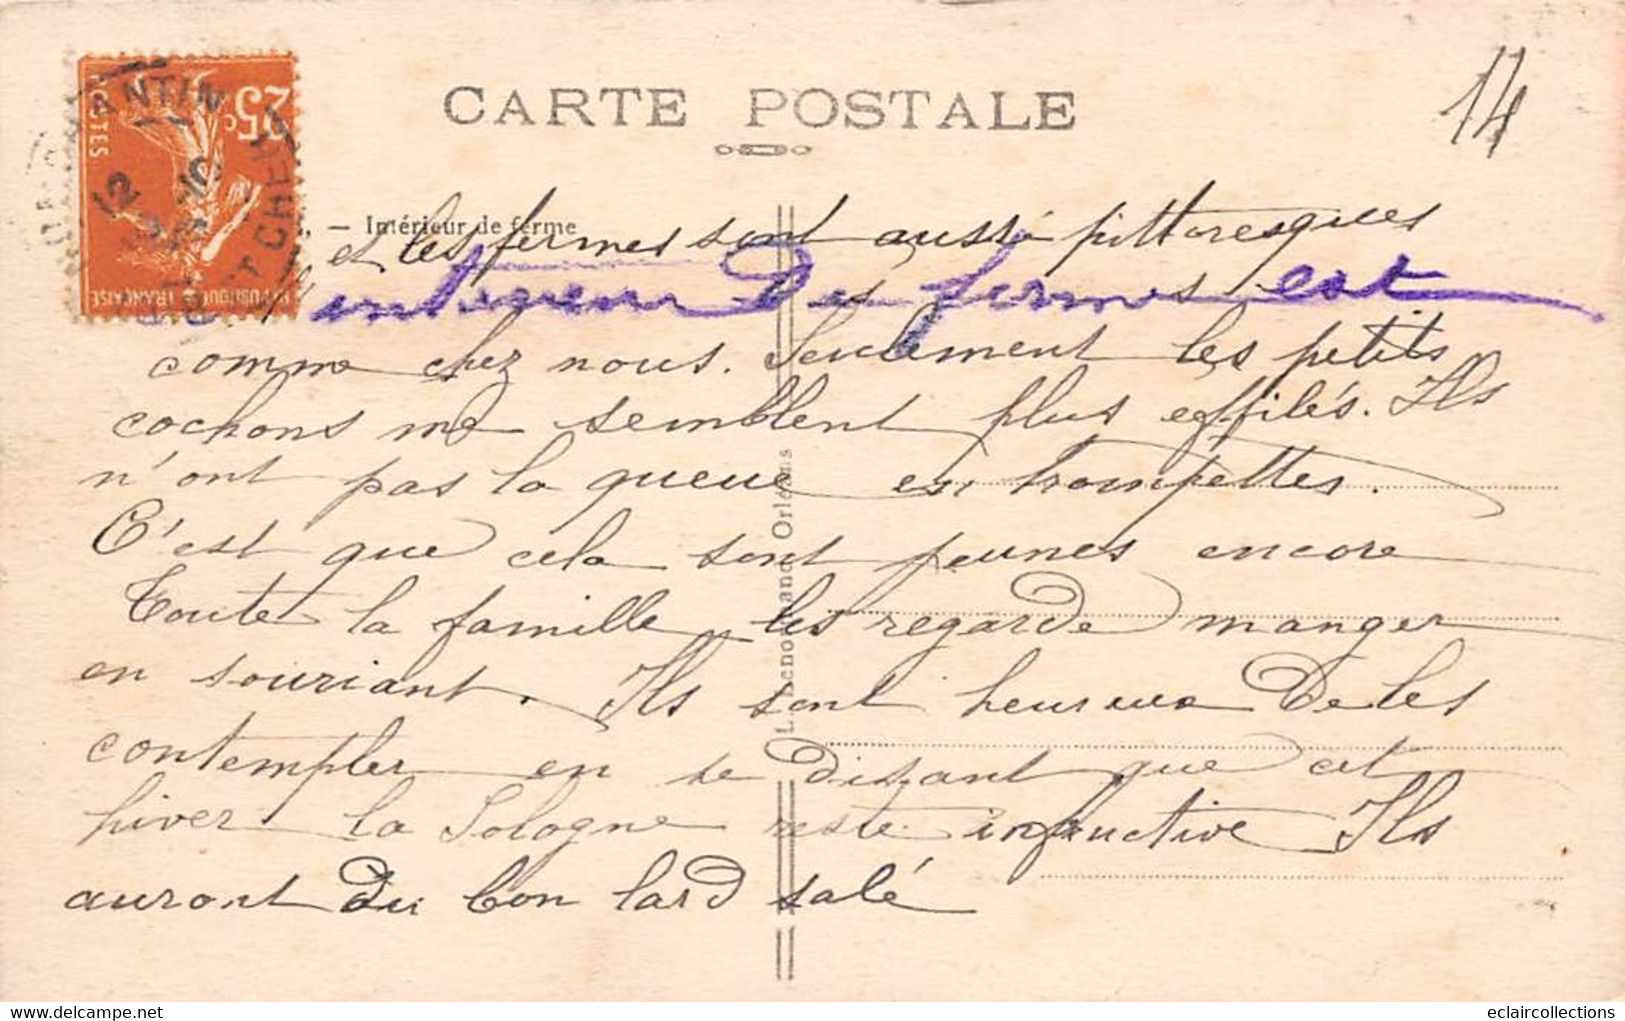 CARTE POSTALE
14
25c
POSTES
REPUBLIQUE FRANÇAISE
ANTIN
12
ET CHER
. — Intérieur de ferme
et les fermes sont aussi pittoresques
interieur des fermes est
comme chez nous. Seulement les petits
cochons me semblent plus effilés. Ils
n'ont pas la queue en trompettes.
C'est que cela sont jeunes encore
Toute la famille les regarde manger
en souriant. Ils sont heureux de les
contempler en se disant que cet
hiver la Sologne reste infructive Ils
auront du bon lard salé
L. Lenormand Orléans
www.delcampe.net
eclaircollections